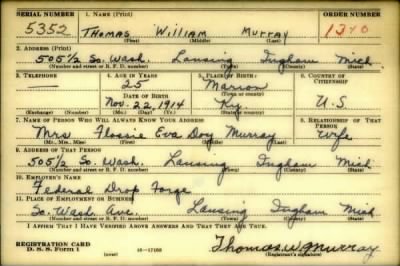 SERIAL NUMBER 1. NAME (Print) ORDER NUMBER
5352 Thomas William Murray
(First) (Middle) (Last)
2. ADDRESS (Print)
505 1/2 So. Wash. Lansing Ingham Mich
(Number and street or R. F. D. number) (Town) (County) (State)
3. TELEPHONE 4. AGE IN YEARS 5. PLACE OF BIRTH 6. COUNTRY OF CITIZENSHIP
25 Marion
DATE OF BIRTH (Town or county)
Nov. 22, 1914 Ky. U.S
(Exchange) (Number) (Mo.) (Day) (Yr.) (State or country)
7. NAME OF PERSON WHO WILL ALWAYS KNOW YOUR ADDRESS 8. RELATIONSHIP OF THAT PERSON
Mrs Flossie Eva Murray Wife
(Mr., Mrs., Miss) (First) (Middle) (Last)
9. ADDRESS OF THAT PERSON
505 1/2 So. Wash. Lansing Ingham Mich
(Number and street or R. F. D. number) (Town) (County) (State)
10. EMPLOYER'S NAME
Federal Drop Forge
11. PLACE OF EMPLOYMENT OR BUSINESS
So. Wash Ave. Lansing Ingham Mich
(Number and street or R. F. D. number) (Town) (County) (State)
I AFFIRM THAT I HAVE VERIFIED ABOVE ANSWERS AND THAT THEY ARE TRUE.
REGISTRATION CARD
D. S. S. Form 1 (over) Thomas W. Murray
(Registrant's signature)